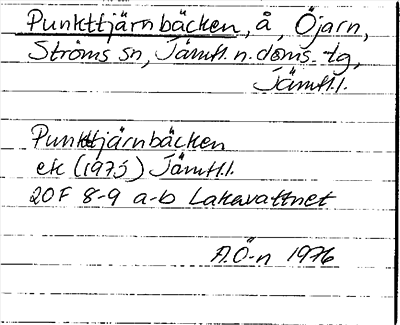 Punkttjärnbäcken, å, Öjarn,
Ströms sn, Jämtl. n. doms.-tg,
Jämtl. l.
Punkttjärnbäcken
ek (1975) Jämtl. l.
20F 8-9 a-b Lakavattnet
A.Ö-n 1976